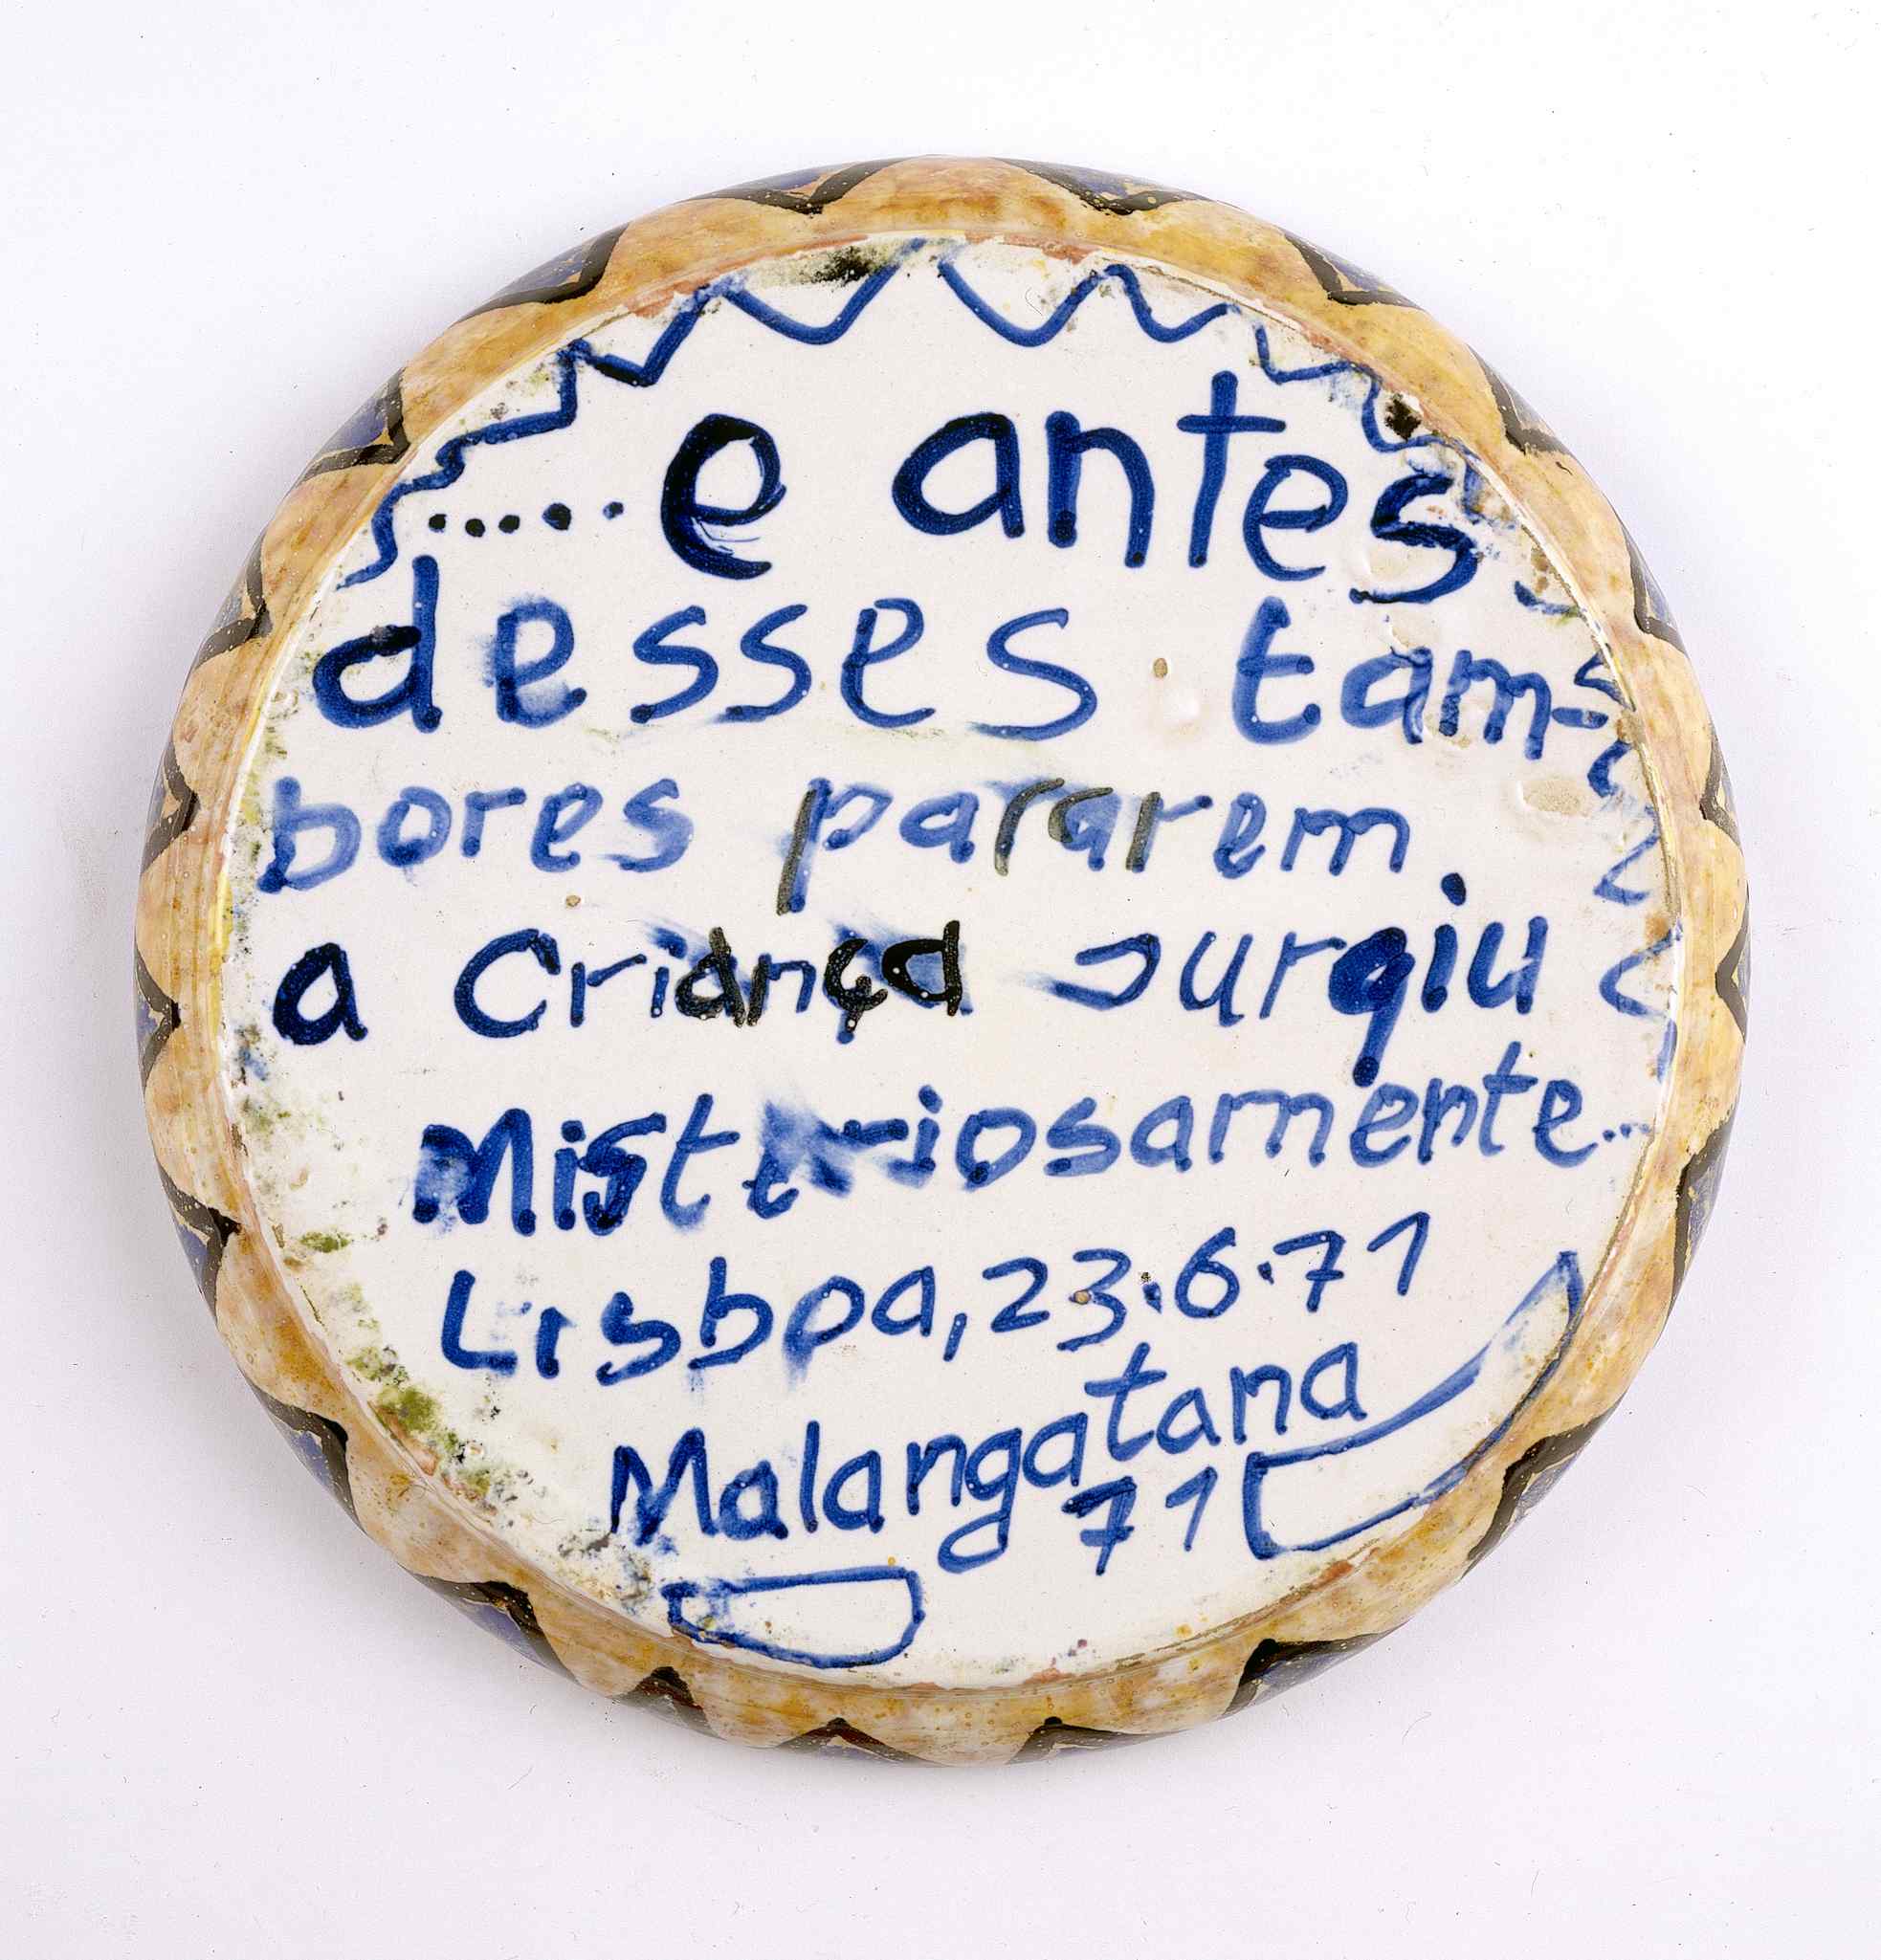 .....e antes
desses tam-
bores pararem.
a Criança surgiu
Misteriosamente...
Lisboa, 23.6.71
Malangatana
71